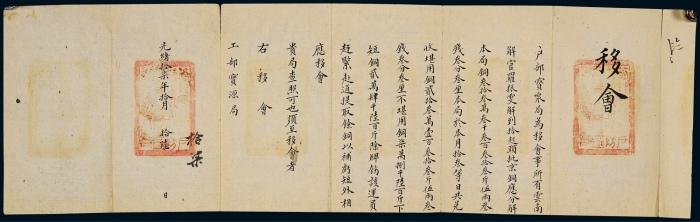 移會
戶部寶泉局為移會事所有雲南
解官羅振雯解到拾起頭批京銅應分解
本局銅叁拾叁萬叁千叁百叁拾叁斤伍兩叁
錢叁分叁厘本局於本月拾叁等日共兌
收堪用銅貳拾叁萬壹百叁拾叁斤伍兩叁
錢叁分叁厘不堪用銅柒萬捌千陸百斤下
短銅貳萬肆千陸百斤除聯飭該運員
趕緊赴通提取餘銅以補虧短外相
應移會
貴局查照可也須至移會者
右移會
工部寶源局
光緒拾柒年拾月 拾柒 日